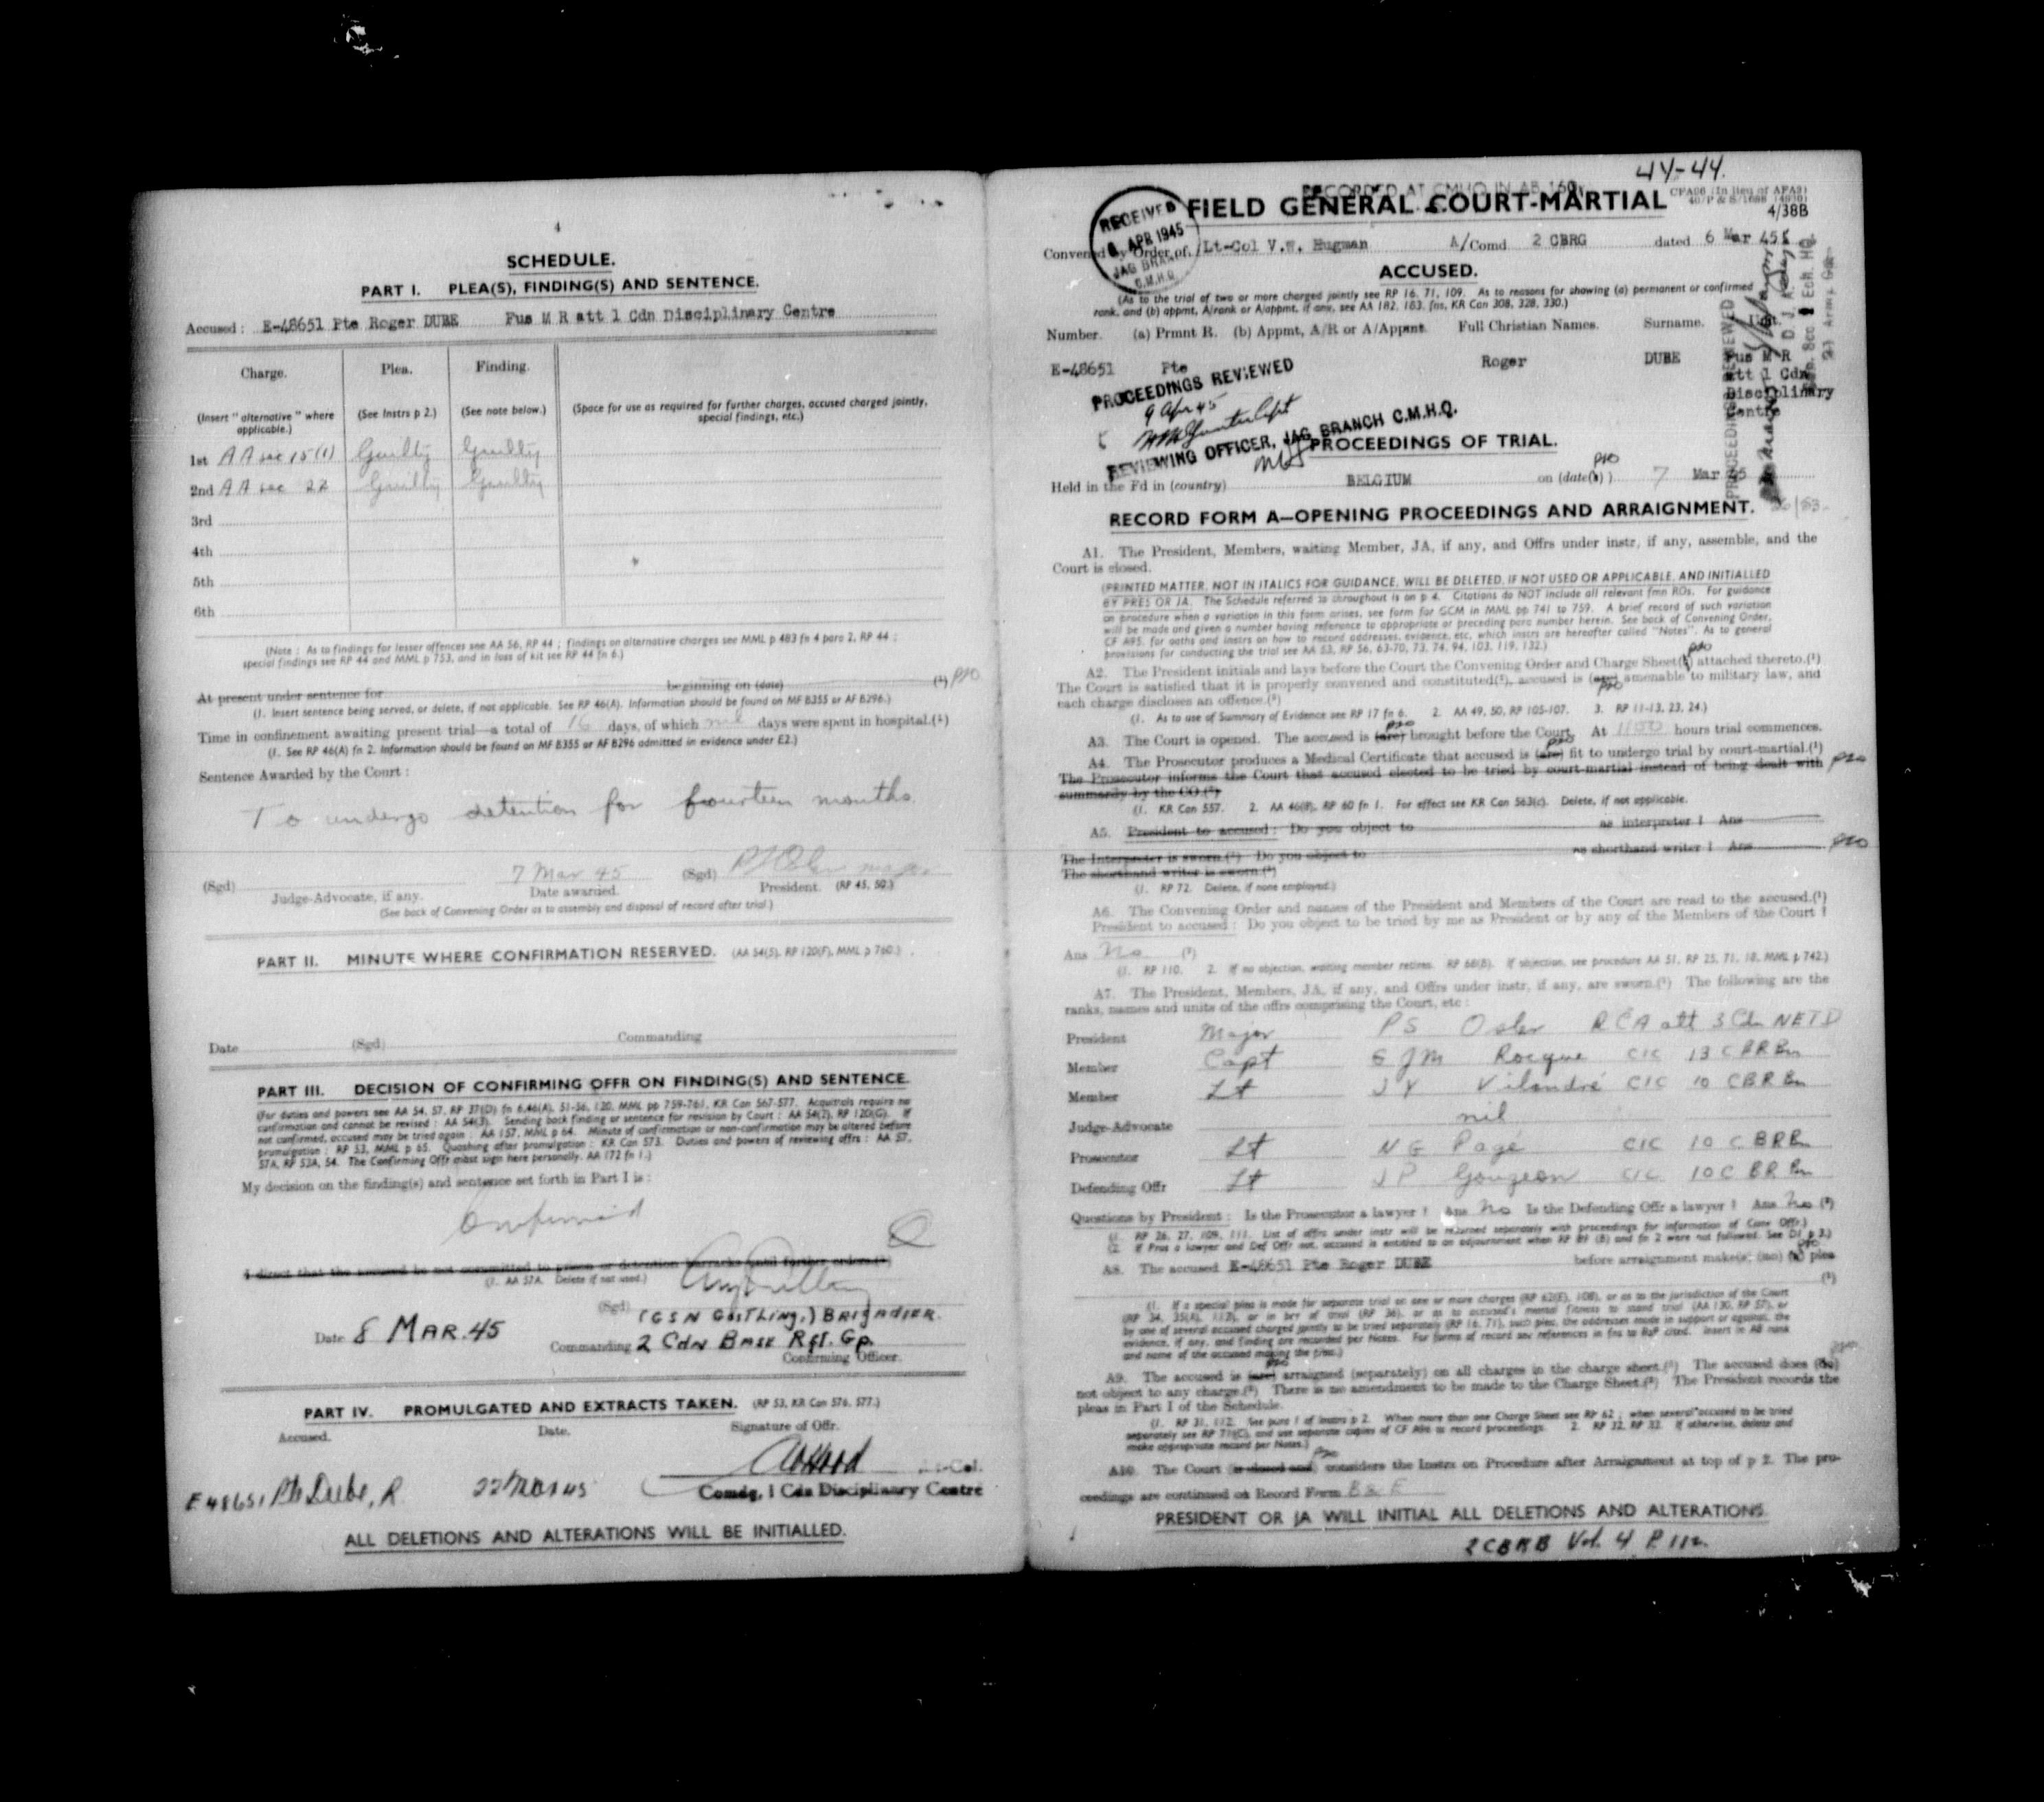 4
SCHEDULE.
PART I. PLEA(S), FINDING(S) AND SENTENCE.
Accused : E-48651 Pte Roger DUBE Fus M R att 1 Cdn Disciplinary Centre
Charge. Plea. Finding.
(Insert " alternative " where applicable.) (See Instrs p 2.) (See note below.) (Space for use as required for further charges, accused charged jointly, special findings, etc.)
1st AA sec 15(1) Guilty Guilty
2nd AA sec 22 Guilty Guilty
3rd
4th
5th
6th
(Note : As to findings for lesser offences see AA 56, RP 44 ; findings on alternative charges see MML p 483 fn 4 para 2, RP 44 ;
special findings see RP 44 and MML p 753, and in loss of kit see RP 44 fn 6.)
At present under sentence for beginning on (date) (1) PSO
(1. Insert sentence being served, or delete, if not applicable. See RP 46(A). Information should be found on MF B355 or AF B296.)
Time in confinement awaiting present trial—a total of 16 days, of which nil days were spent in hospital.(1)
(1. See RP 46(A) fn 2. Information should be found on MF B355 or AF B296 admitted in evidence under E2.)
Sentence Awarded by the Court :
To undergo detention for fourteen months.
(Sgd) 7 Mar 45 (Sgd) PSOsler major
Judge-Advocate, if any. Date awarded. President. (RP 45, 50.)
(See back of Convening Order as to assembly and disposal of record after trial.)
PART II. MINUTE WHERE CONFIRMATION RESERVED. (AA 54(5), RP 120(F), MML p 760.)
Date (Sgd) Commanding
PART III. DECISION OF CONFIRMING OFFR ON FINDING(S) AND SENTENCE.
(For duties and powers see AA 54, 57, RP 37(D) fn 6,46(A), 51-56, 120, MML pp 759-761, KR Can 567-577. Acquittals require no
confirmation and cannot be revised : AA 54(3). Sending back finding or sentence for revision by Court : AA 54(2), RP 120(G). If
not confirmed, accused may be tried again : AA 157, MML p 64. Minute of confirmation or non-confirmation may be altered before
promulgation : RP 53, MML p 65. Quashing after promulgation : KR Can 573. Duties and powers of reviewing offrs : AA 57,
57A, RP 53A, 54. The Confirming Offr must sign here personally. AA 172 fn 1.)
My decision on the finding(s) and sentence set forth in Part I is :
Confirmed
I direct that the accused be not committed to prison or detention barracks until further orders.(1)
(1. AA 57A. Delete if not used.)
(Sgd) (GSN GOSTLING,) BRIGADIER.
Date 8 MAR.45 Commanding 2 CDN BASE RFT. GP.
Confirming Officer.
PART IV. PROMULGATED AND EXTRACTS TAKEN. (RP 53, KR Can 576, 577.)
Accused. Date. Signature of Offr.
E48651 Pte Dube, R 22 Mar 45 Lt-Col.
Comdg, 1 Cdn Disciplinary Centre
ALL DELETIONS AND ALTERATIONS WILL BE INITIALLED.
44-44.
RECORDED AT CMHQ IN AB 160
FIELD GENERAL COURT-MARTIAL
4/38B
RECEIVED
APR 1945
JAG BRANCH
C.M.H.Q.
Convened by Order of Lt-Col V.W. Hugman A/Comd 2 CBRG dated 6 Mar 45
ACCUSED.
(As to the trial of two or more charged jointly see RP 16, 71, 109. As to reasons for showing (a) permanent or confirmed
rank, and (b) appmt, A/rank or A/appmt, if any, see AA 182, 183, fns, KR Can 308, 328, 330.)
Number. (a) Prmnt R. (b) Appmt, A/R or A/Appmt. Full Christian Names. Surname. Unit.
E-48651 Pte Roger DUBE Fus M R
att 1 Cdn
Disciplinary
Centre
PROCEEDINGS REVIEWED
9 Apr 45
REVIEWING OFFICER, JAG BRANCH C.M.H.Q.
PROCEEDINGS REVIEWED
PROCEEDINGS OF TRIAL.
Held in the Fd in (country) BELGIUM on (date(s)) 7 Mar 45
RECORD FORM A—OPENING PROCEEDINGS AND ARRAIGNMENT.
A1. The President, Members, waiting Member, JA, if any, and Offrs under instr, if any, assemble, and the
Court is closed.
(PRINTED MATTER, NOT IN ITALICS FOR GUIDANCE, WILL BE DELETED, IF NOT USED OR APPLICABLE, AND INITIALLED
BY PRES OR JA. The Schedule referred to throughout is on p 4. Citations do NOT include all relevant fmn ROs. For guidance
on procedure when a variation in this form arises, see form for GCM in MML pp 741 to 759. A brief record of such variation
will be made and given a number having reference to appropriate or preceding para number herein. See back of Convening Order,
CF A95, for oaths and instrs on how to record addresses, evidence, etc, which instrs are hereafter called "Notes". As to general
provisions for conducting the trial see AA 53, RP 56, 63-70, 73, 74, 94, 103, 119, 132.)
A2. The President initials and lays before the Court the Convening Order and Charge Sheet(s) attached thereto.(1)
The Court is satisfied that it is properly convened and constituted(2), accused is (are) amenable to military law, and
each charge discloses an offence.(3)
(1. As to use of Summary of Evidence see RP 17 fn 6. 2. AA 49, 50, RP 105-107. 3. RP 11-13, 23, 24.)
A3. The Court is opened. The accused is (are) brought before the Court. At 1100 hours trial commences.
A4. The Prosecutor produces a Medical Certificate that accused is (are) fit to undergo trial by court-martial.(1)
The Prosecutor informs the Court that accused elected to be tried by court-martial instead of being dealt with PSO
summarily by the CO.(2)
(1. KR Can 557. 2. AA 46(8), RP 60 fn 1. For effect see KR Can 563(c). Delete, if not applicable.
A5. President to accused : Do you object to as interpreter ? Ans
The Interpreter is sworn.(1) Do you object to as shorthand writer ? Ans PSO
The shorthand writer is sworn.(1)
(1. RP 72. Delete, if none employed.)
A6. The Convening Order and names of the President and Members of the Court are read to the accused.(1)
President to accused : Do you object to be tried by me as President or by any of the Members of the Court ?
Ans No (2)
(1. RP 110. 2. If no objection, waiting member retires. RP 68(B). If objection, see procedure AA 51, RP 25, 71, 18, MML p 742.)
A7. The President, Members, JA, if any, and Offrs under instr, if any, are sworn.(1) The following are the
ranks, names and units of the offrs comprising the Court, etc :
President Major PS Osler RCA att 3 Cdn NETD
Member Capt EJM Rocque CIC 13 CBRBn
Member Lt JY Vilandré CIC 10 CBR Bn
Judge-Advocate nil
Prosecutor Lt NG Pagé CIC 10 CBRBn
Defending Offr Lt JP Gougeon CIC 10 CBR Bn
Questions by President : Is the Prosecutor a lawyer ? Ans No Is the Defending Offr a lawyer ? Ans No (2)
(1. RP 26, 27, 109, 111. List of offrs under instr will be returned separately with proceedings for information of Conv Offr.)
(2. If Pros a lawyer and Def Offr not, accused is entitled to an adjournment when RP 89 (B) and fn 2 were not followed. See D1 p 3.)
A8. The accused E-48651 Pte Roger DUBE before arraignment make(s) (no) (a) plea
(1)
(1. If a special plea is made for separate trial on one or more charges (RP 62(E), 108), or as to the jurisdiction of the Court
(RP 34, 35(A), 112), or in bar of trial (RP 36), or as to accused's mental fitness to stand trial (AA 130, RP 57), or
by one of several accused charged jointly to be tried separately (RP 16, 71), such plea, the addresses made in support or against, the
evidence, if any, and finding are recorded per Notes. For forms of record see references in fns to RsP cited. Insert in A8 rank
and name of the accused making the plea.)
A9. The accused is (are) arraigned (separately) on all charges in the charge sheet.(1) The accused does (do)
not object to any charge.(2) There is no amendment to be made to the Charge Sheet.(2) The President records the
pleas in Part I of the Schedule.
(1. RP 31, 112. See para 1 of Instrs p 2. When more than one Charge Sheet see RP 62 ; when several accused to be tried
separately see RP 71(C), and use separate copies of CF A96 to record proceedings. 2. RP 32, RP 33. If otherwise, delete and
make appropriate record per Notes.)
A10. The Court (is closed and) considers the Instrs on Procedure after Arraignment at top of p 2. The pro-
ceedings are continued on Record Form B & E
PRESIDENT OR JA WILL INITIAL ALL DELETIONS AND ALTERATIONS.
2 CBRB Vol. 4 P. 112